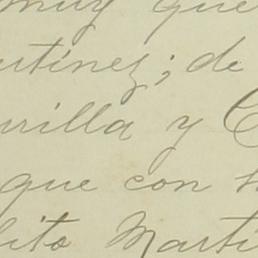 muy que
rtinez; de
urilla y C
que con
lito Martí